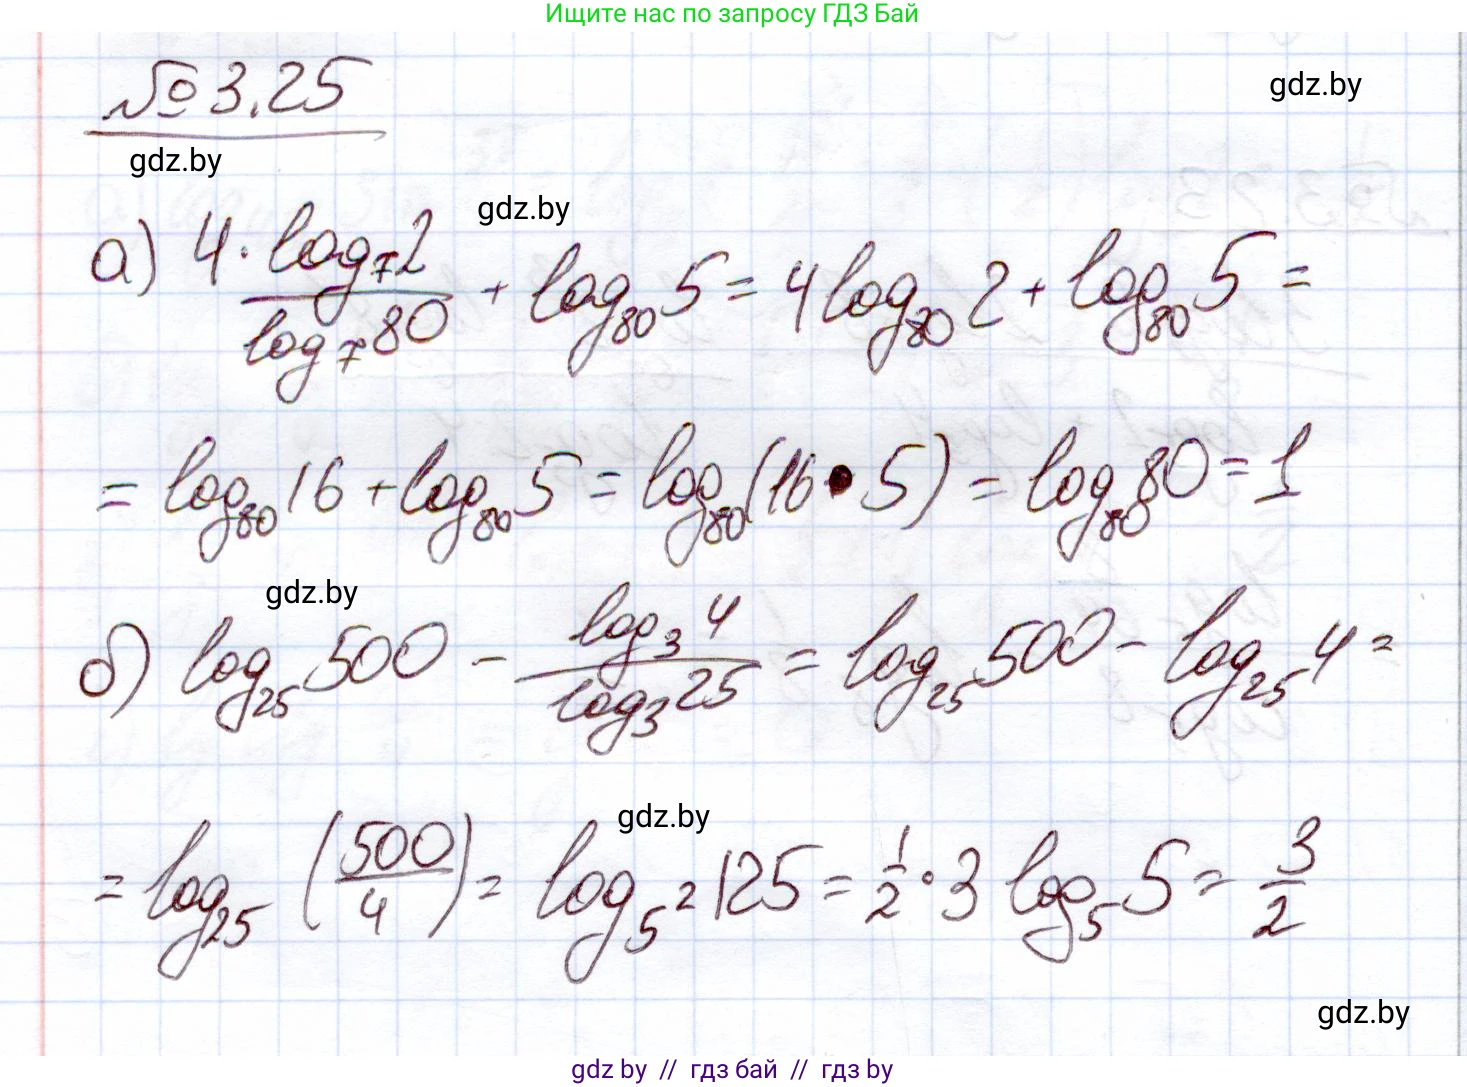 Ищите нас по запросу ГДЗ Бай
№ 3.25
gdz.by
gdz.by
gdz.by
а) 4 · log₇2 / log₇80 + log₈₀5 = 4log₈₀2 + log₈₀5 =
= log₈₀16 + log₈₀5 = log₈₀(16 • 5) = log₈₀80 = 1
gdz.by
б) log₂₅500 − log₃4 / log₃25 = log₂₅500 − log₂₅4 =
gdz.by
= log₂₅(500/4) = log₅²125 = 1/2 · 3 log₅5 = 3/2
gdz.by
gdz by // гдз бай // гдз by